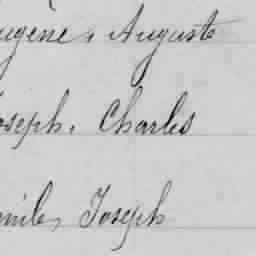 ugène, Auguste
oseph, Charles
mile, Joseph